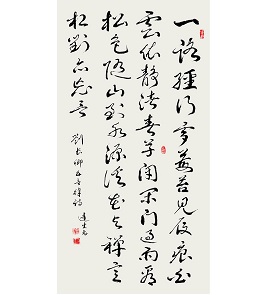 一路經行處莓苔見履痕白
雲依靜渚春草閉閑門過雨看
松色隨山到水源溪花與禪意
相對亦忘言
劉長卿五言律詩